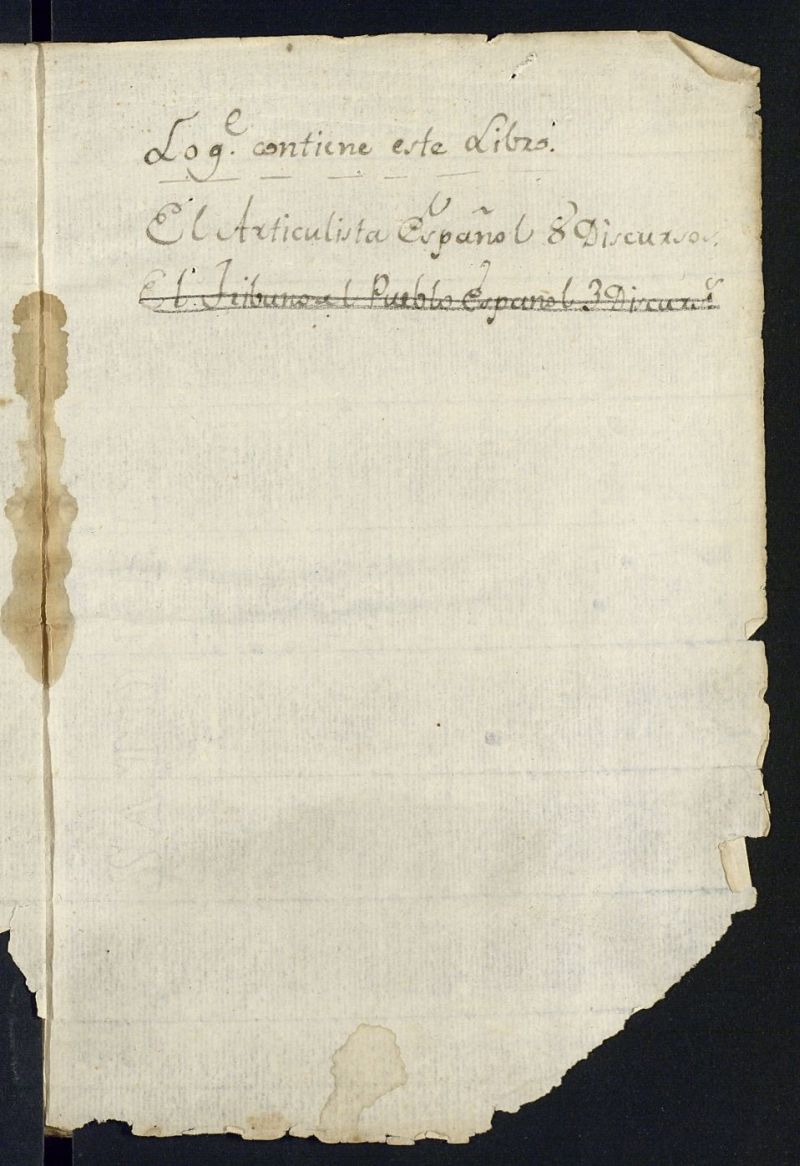 Lo q.e contiene este Libro.
El Articulista Español 8 Discursos.
El Tribuno al Pueblo Español 3 Discurs.s